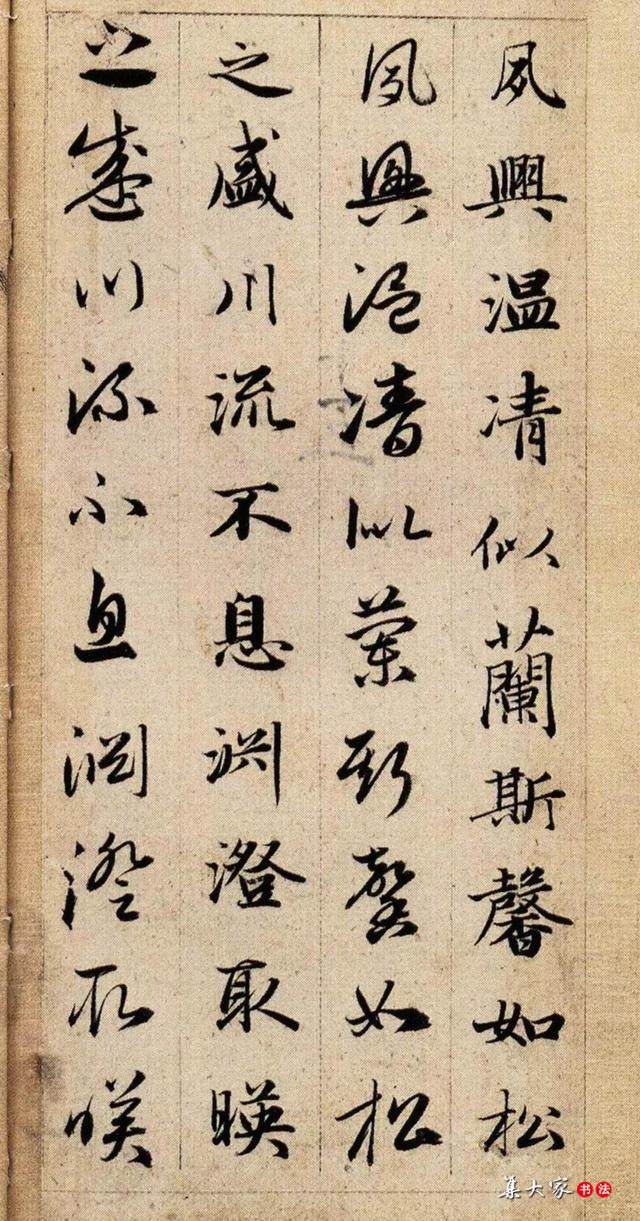 夙興温凊似蘭斯馨如松
夙興温凊似蘭斯馨如松
之盛川流不息淵澄取暎
之盛川流不息淵澄取暎
集大家书法